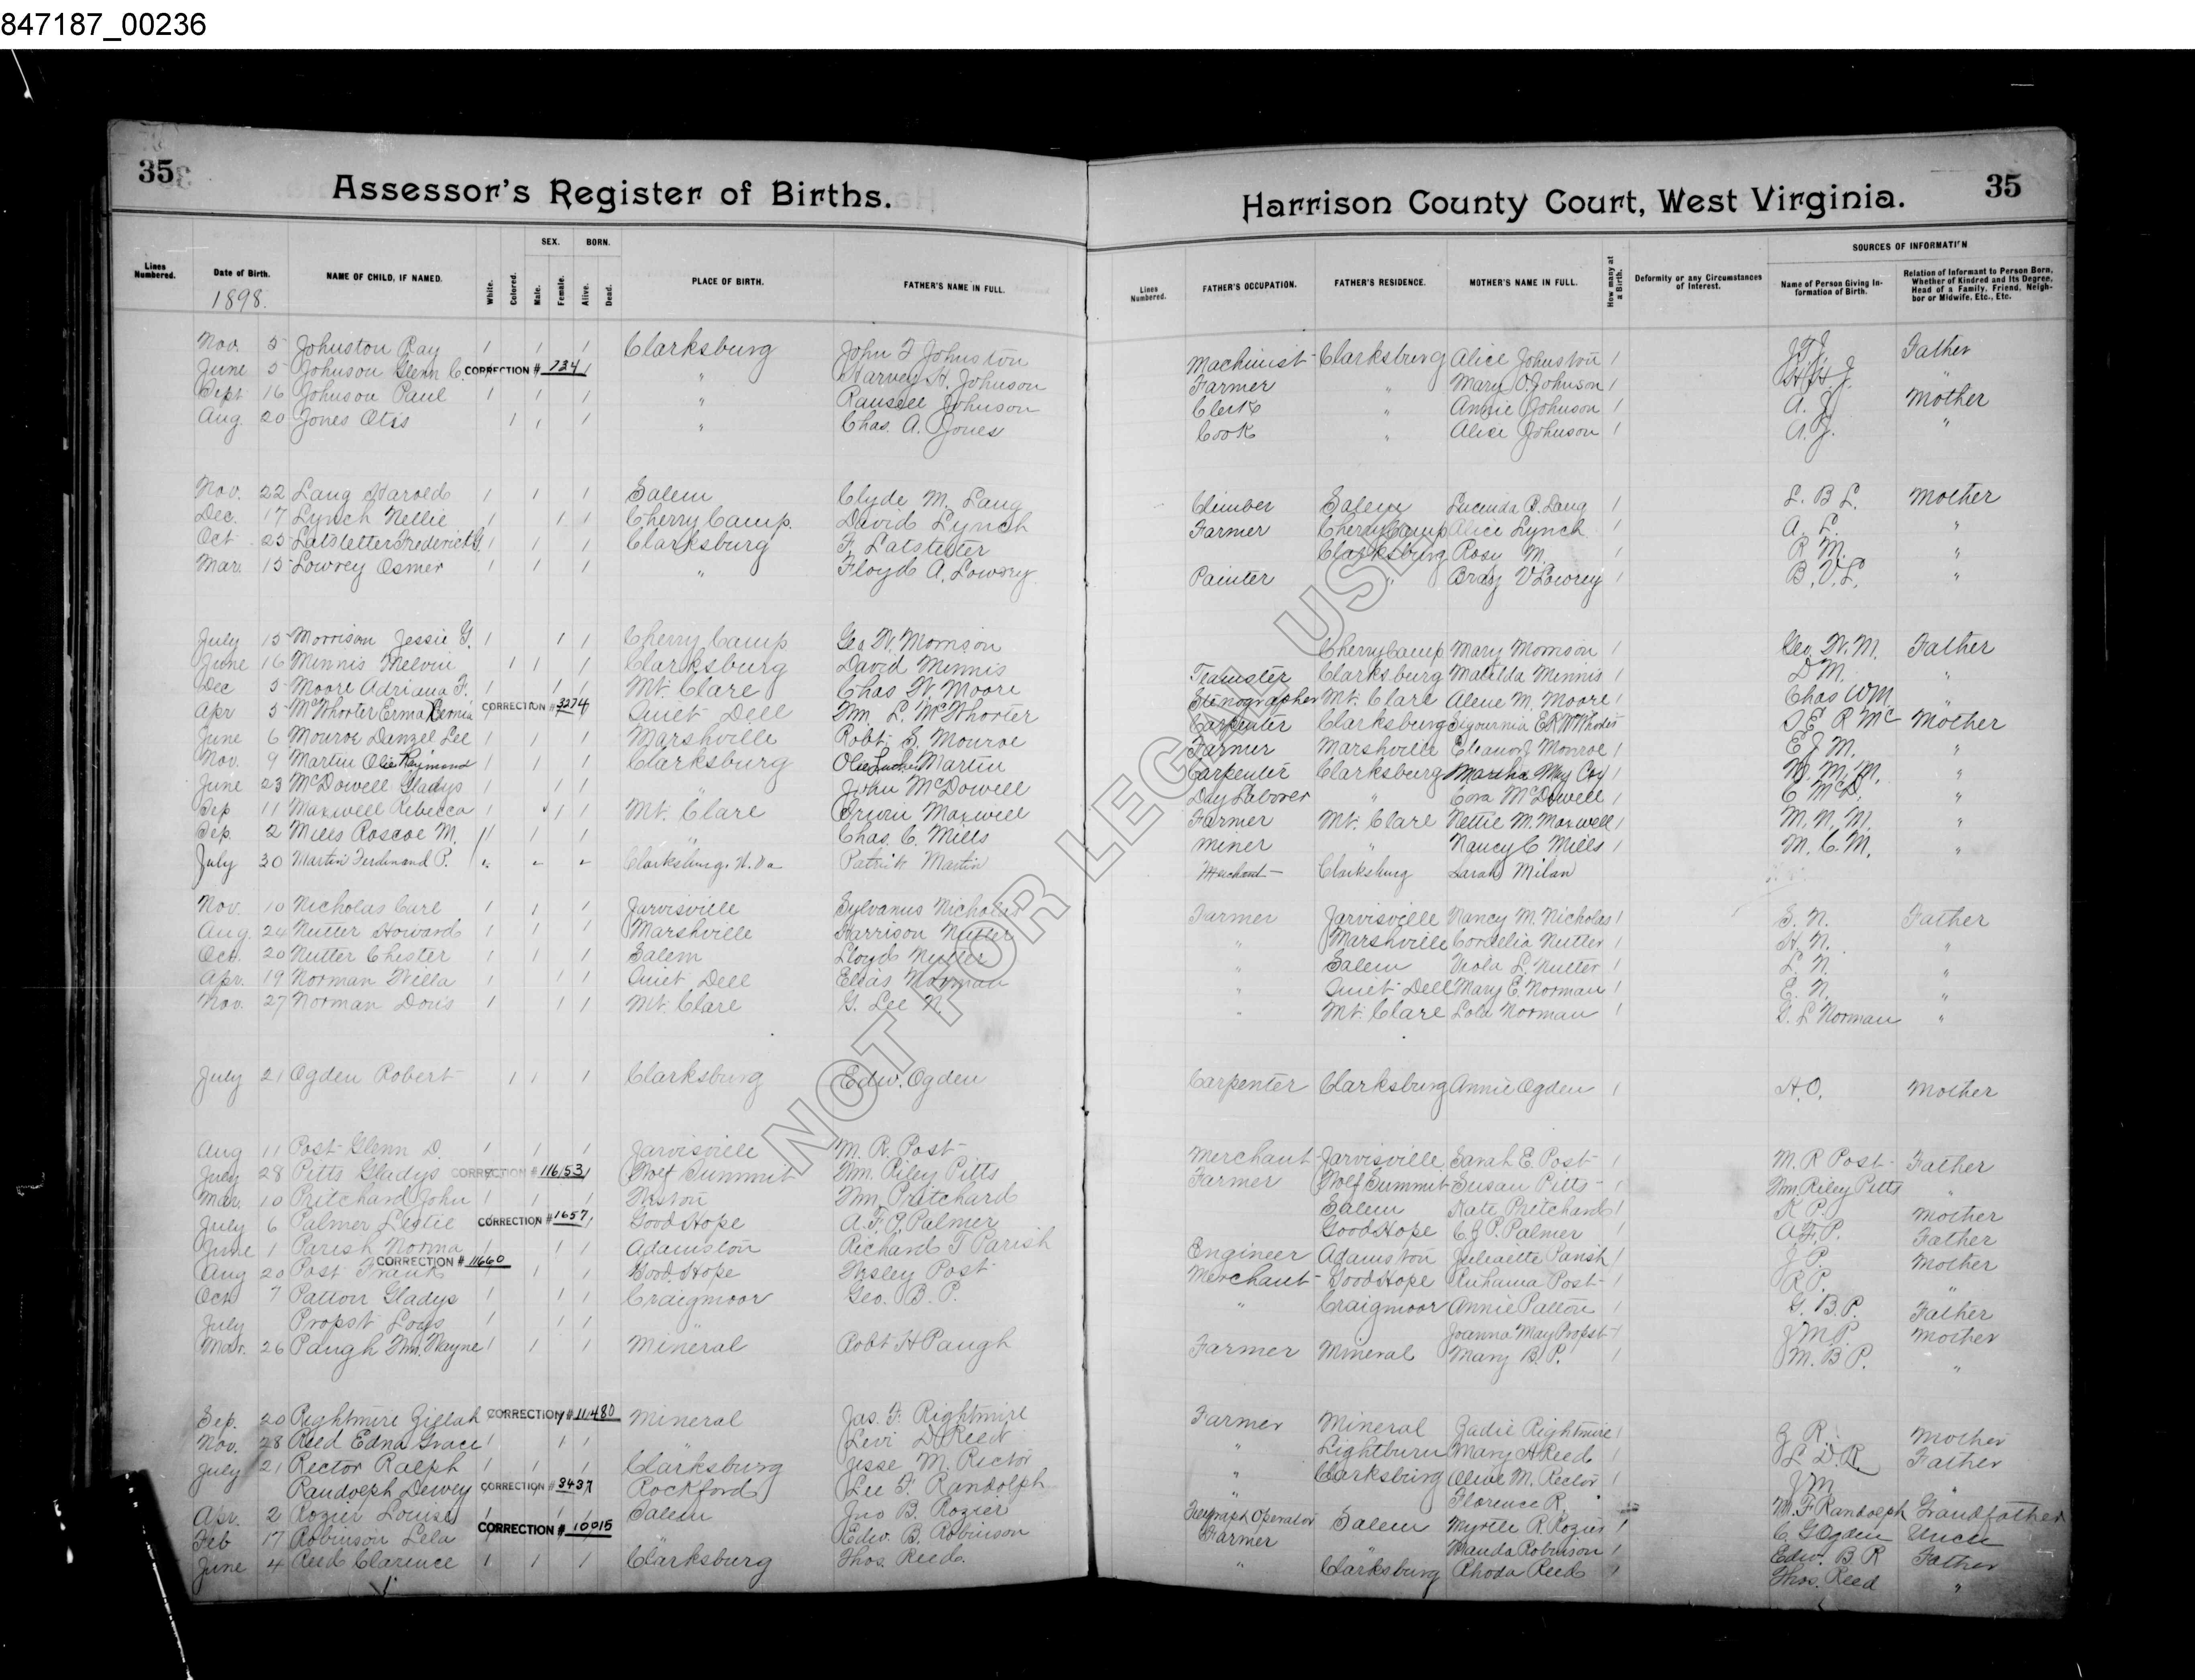 847187_00236
35
Assessor's Register of Births.
Harrison County Court, West Virginia.
35
Lines Numbered. Date of Birth. NAME OF CHILD, IF NAMED. White. Colored. SEX. Male. Female. BORN. Alive. Dead. PLACE OF BIRTH. FATHER'S NAME IN FULL. Lines Numbered. FATHER'S OCCUPATION. FATHER'S RESIDENCE. MOTHER'S NAME IN FULL. How many at a Birth. Deformity or any Circumstances of Interest. SOURCES OF INFORMATION Name of Person Giving Information of Birth. Relation of Informant to Person Born, Whether of Kindred and Its Degree, Head of a Family, Friend, Neighbor or Midwife, Etc., Etc.
1898.
Nov. 5 Johnston Ray 1 1 1 Clarksburg John F Johnston Machinist Clarksburg Alice Johnston 1 J F J Father
June 5 Johnson Glenn C. CORRECTION # 724 1 " Harvey H. Johnson Farmer " Mary O Johnson 1 H. H. J. "
Sept 16 Johnson Paul 1 1 1 " Johnson Clerk " Annie Johnson 1 A. J. Mother
Aug. 20 Jones Otis 1 1 1 " Chas. A. Jones Cook " Alice Johnson 1 A. J. "
Nov. 22 Lang Harold 1 1 1 Salem Clyde M. Lang Climber Salem Lucinda B. Lang 1 L. B L. Mother
Dec. 17 Lynch Nellie 1 1 1 Cherry Camp. David Lynch Farmer Cherry Camp Alice Lynch 1 A. L. "
Oct 25 Latstetter Frederick G. 1 1 1 Clarksburg F. Latstetter Clarksburg Rosy M. 1 R M. "
Mar. 15 Lowrey Osmer 1 1 1 " Floyd A. Lowrey Painter " V Lowrey 1 B. V. L. "
July 15 Morrison Jessie G. 1 1 1 Cherry Camp Geo W. Morrison Cherry Camp Mary Morrison 1 Geo. W. M. Father
June 16 Minnis Melvin 1 1 1 Clarksburg David Minnis Teamster Clarksburg Matilda Minnis 1 D M. "
Dec 5 Moore Adriana F. 1 1 1 Mt. Clare Chas W. Moore Stenographer Mt. Clare Alene M. Moore 1 Chas W M. "
Apr 5 McWhorter Erma CORRECTION # 3274 Quiet Dell Wm. L. McWhorter Carpenter Clarksburg S E R Mc Mother
June 6 Monroe Denzel Lee 1 1 1 Marshville Robt S. Monroe Farmer Marshville Eleanor J Monroe 1 E J M. "
Nov. 9 Martin Olie Raymond 1 1 1 Clarksburg Olie Luther Martin Carpenter Clarksburg Martha May Coy 1 M. M. M. "
June 23 McDowell Gladys 1 1 1 " John McDowell Day Laborer " Cora McDowell 1 C McD. "
Sep 11 Maxwell Rebecca 1 1 1 Mt. Clare Orwin Maxwell Farmer Mt. Clare Nettie M. Maxwell 1 M. N. M. "
Sep. 2 Mills Roscoe M. 1 1 1 " Chas. C. Mills Miner " Nancy C Mills 1 M. C. M. "
July 30 Martin Ferdinand P. Clarksburg, W. Va Patrick Martin Merchant Clarksburg Sarah Milan
Nov. 10 Nicholas Carl 1 1 1 Jarvisville Sylvanus Nicholas Farmer Jarvisville Nancy M. Nicholas 1 S. N. Father
Aug. 24 Nutter Howard 1 1 1 Marshville Harrison Nutter " Marshville Cordelia Nutter 1 H. N. "
Oct. 20 Nutter Chester 1 1 1 Salem Lloyd Nutter " Salem Viola L. Nutter 1 L. N. "
Apr. 19 Norman Willa 1 1 1 Quiet Dell Elias Norman " Quiet Dell Mary E. Norman 1 E. N. "
Nov. 27 Norman Doris 1 1 1 Mt. Clare G. Lee N. " Mt. Clare Lola Norman 1 G. L Norman "
July 21 Ogden Robert 1 1 1 Clarksburg Edw. Ogden Carpenter Clarksburg Annie Ogden 1 A. O. Mother
Aug 11 Post Glenn D. 1 1 1 Jarvisville M. R. Post Merchant Jarvisville Sarah E. Post 1 M. R Post Father
July 28 Pitts Gladys CORRECTION # 116153 Wolf Summit Wm. Riley Pitts Farmer Wolf Summit Susan Pitts 1 Wm Riley Pitts "
Mar. 10 Pritchard John 1 1 1 Weston Wm. Pritchard Salem Kate Pritchard 1 K P. Mother
July 6 Palmer Leslie CORRECTION # 1657 1 Good Hope A. F. J. Palmer Good Hope C. J P. Palmer 1 A F. P. Father
June 1 Parish Norma 1 1 1 Adamston Richard T Parish Engineer Adamston Parish 1 J P. Mother
Aug 20 Post Frank CORRECTION # 11660 1 1 Good Hope Wesley Post Merchant Good Hope Post 1 R P. "
Oct 7 Patton Gladys 1 1 1 Craigmoor Geo. B. P. " Craigmoor Annie Patton 1 G. B P. Father
July Propst Loys 1 1 1 " Joanna May Propst 1 J M. P. Mother
Mar. 26 Paugh Wm. Wayne 1 1 1 Mineral Robt H Paugh Farmer Mineral Mary B. P. 1 M. B P. "
Sep. 20 Rightmire Zillah CORRECTION # 11480 Mineral Jas. F. Rightmire Farmer Mineral Zadie Rightmire 1 Z R. Mother
Nov. 28 Reed Edna Grace 1 1 1 " Levi D Reed " Lightburn Mary H Reed 1 L. D. R. Father
July 21 Rector Ralph 1 1 1 Clarksburg Jesse M. Rector " Clarksburg Olive M. Rector 1 J M
Randolph Dewey CORRECTION # 3437 Rockford Lee F. Randolph " Florence R. M. F Randolph Grandfather
Apr. 2 Rozier Louise 1 1 Salem Jno B. Rozier Telegraph Operator Salem Myrtle R Rozier 1 C G Ogden Uncle
Feb 17 Robinson Lela CORRECTION # 10015 Edw. B. Robinson Farmer " Robinson 1 Edw. B R Father
June 4 Reed Clarence 1 1 1 Clarksburg Thos. Reed. " Clarksburg Rhoda Reed 1 Thos. Reed "
NOT FOR LEGAL USE